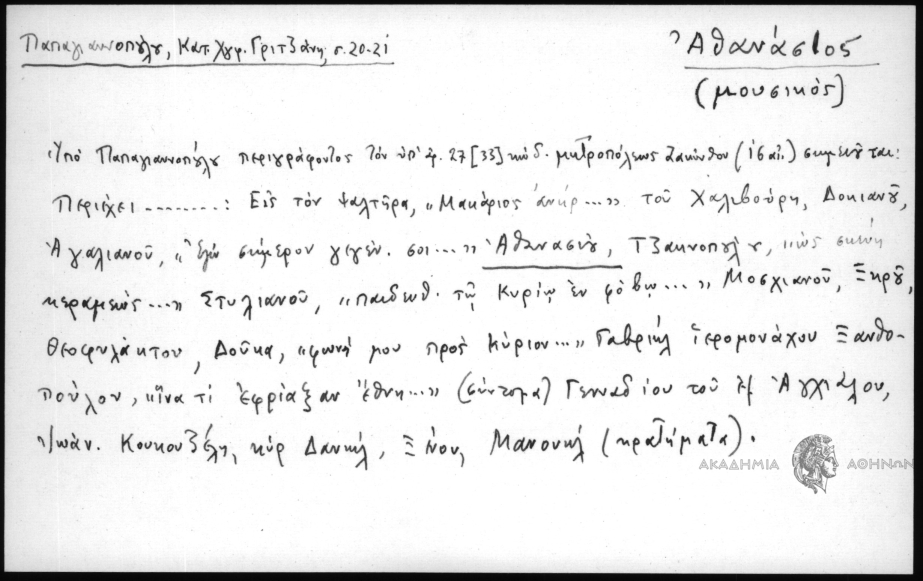 Παπαγιαννοπούλου, Κατ. Χγρ. Γριτζάνη, σ. 20-21
Ἀθανάσιος
(μουσικὸς)
Ὑπὸ Παπαγιαννοπούλου περιγράφοντος τὸν ὑπ' ἀρ. 27 [33] κώδ. μητροπόλεως Ζακύνθου (ιϛ αἰ.) σημειοῦται:
Περιέχει ........: Εἰς τὸν ψαλτῆρα, "Μακάριος ἀνήρ..." τοῦ Χαλιβούρη, Δοκιανοῦ,
Ἀγαλιανοῦ, "Ἐγὼ σήμερον γεγέν. σοι..." Ἀθανασίου, Τζακνοπούλου, "ὡς σκεύη
κεραμέως..." Στυλιανοῦ, "παιδευθ. τῷ Κυρίῳ ἐν φόβῳ..." Μοσχιανοῦ, Ξηροῦ,
Θεοφυλάκτου, Δούκα, "φωνῇ μου πρὸς Κύριον..." Γαβριὴλ ἱερομονάχου Ξανθο-
πούλου, "ἵνα τί ἐφρίαξαν ἔθνη..." (σύντομα) Γενναδίου τοῦ ἐξ Ἀγχιάλου,
Ἰωάν. Κουκουζέλη, κὺρ Δανιήλ, Ξένου, Μανουὴλ (κρατήματα).
ΑΚΑΔΗΜΙΑ ΑΘΗΝΩΝ